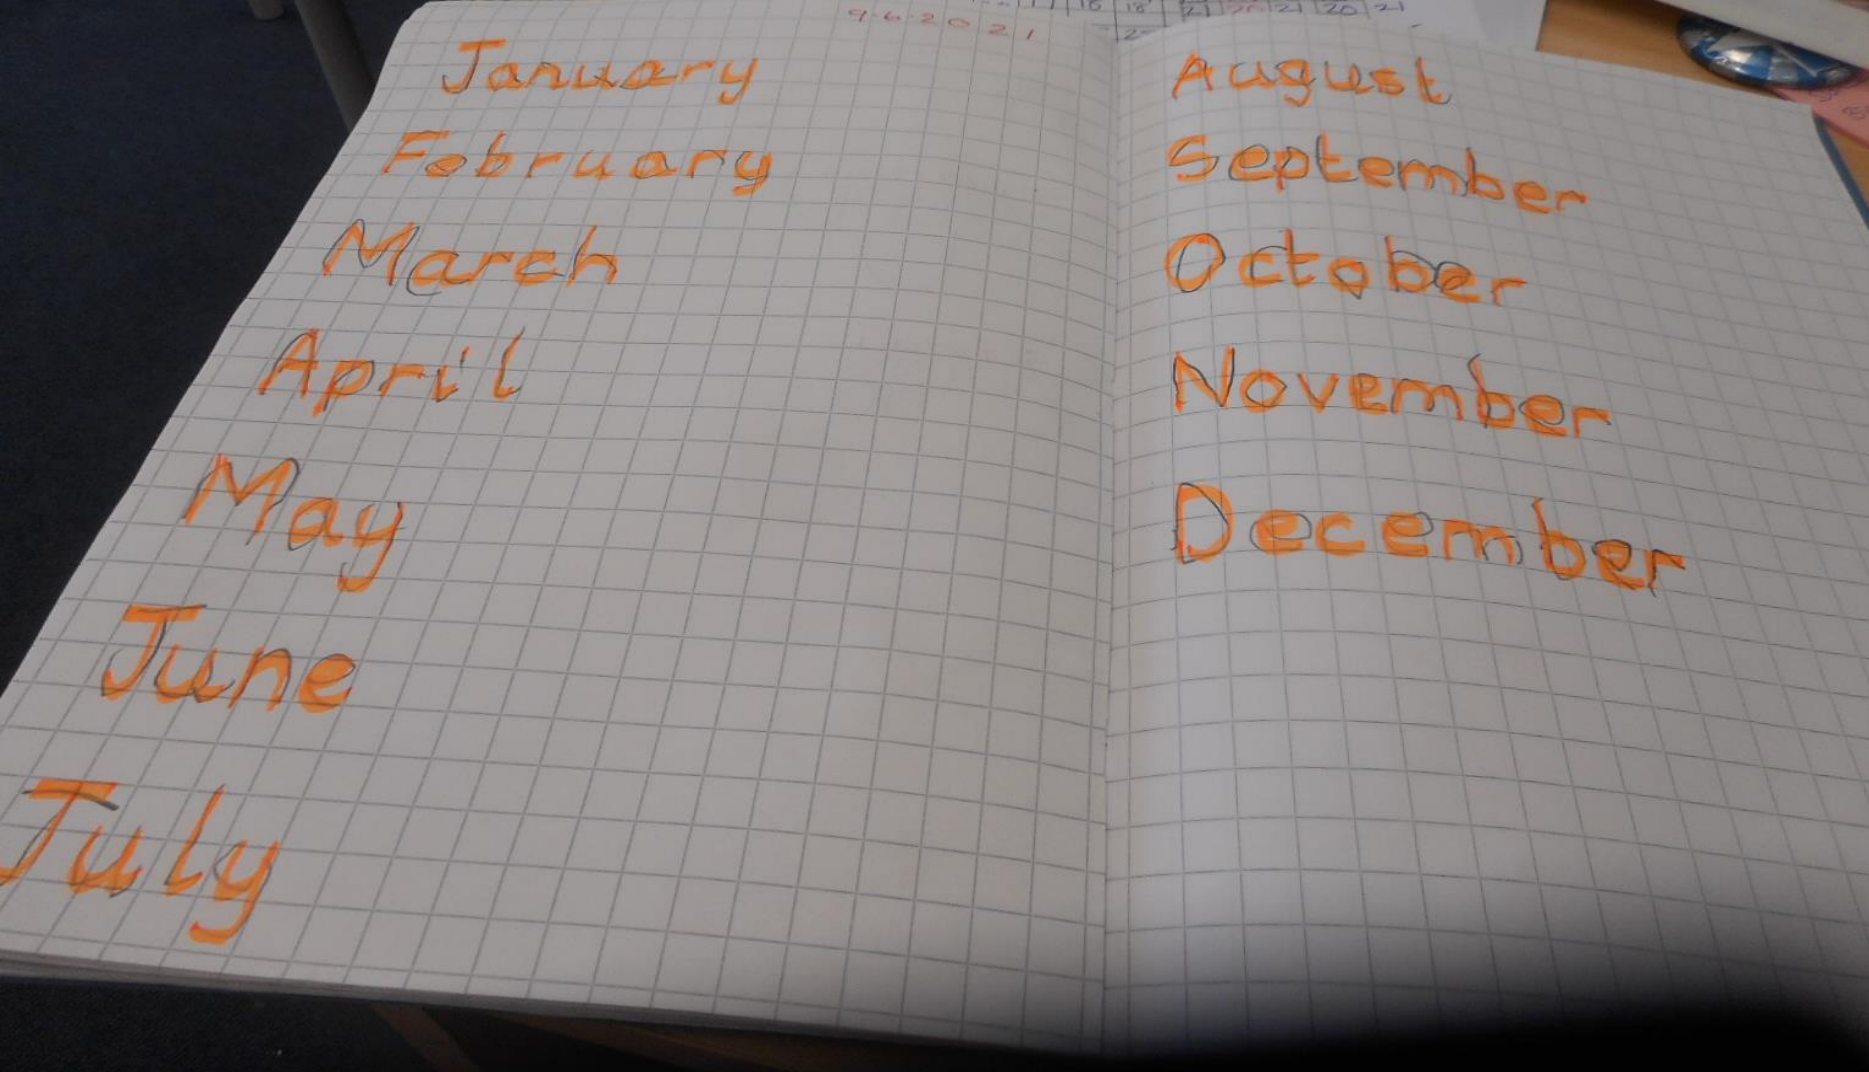 9.6.2021
January
February
March
April
May
June
July
18 18 21 20 21 20 21
August
September
October
November
December